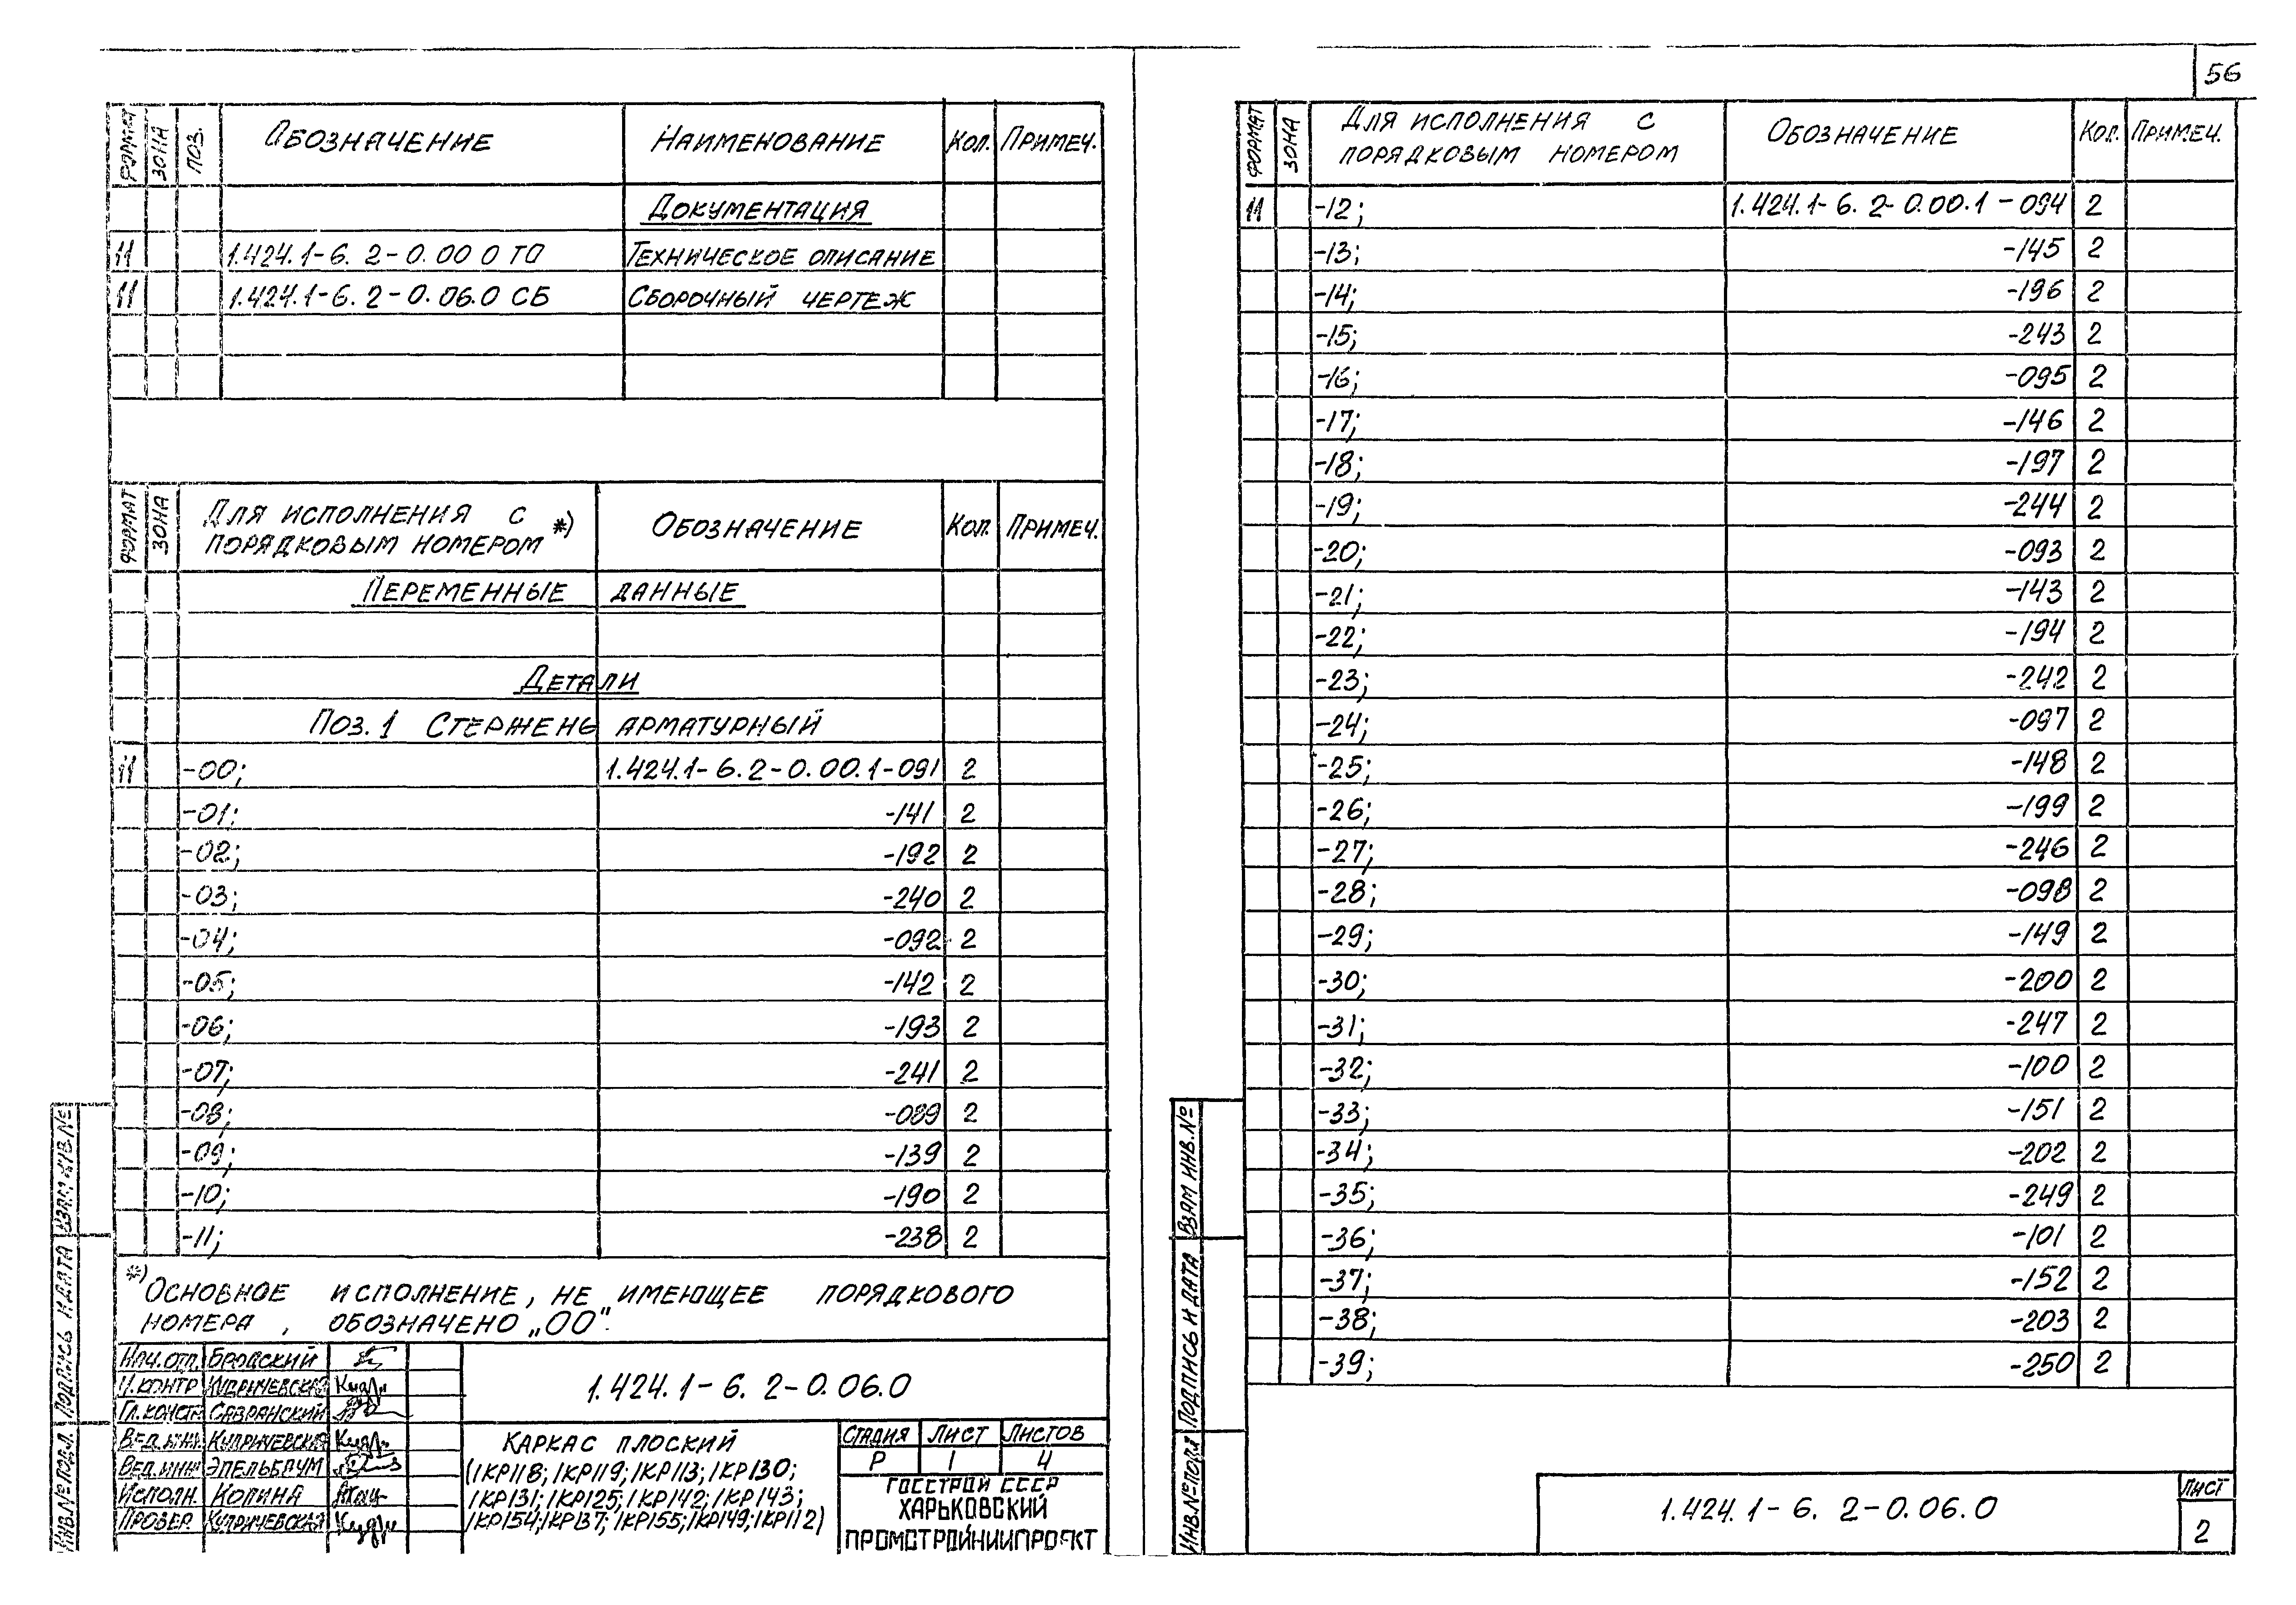 56
ФОРМАТ ЗОНА ПОЗ. ОБОЗНАЧЕНИЕ НАИМЕНОВАНИЕ КОЛ. ПРИМЕЧ.
ДОКУМЕНТАЦИЯ
11 1.424.1-6.2-0.00 0 ТО ТЕХНИЧЕСКОЕ ОПИСАНИЕ
11 1.424.1-6.2-0.06.0 СБ СБОРОЧНЫЙ ЧЕРТЕЖ
ФОРМАТ ЗОНА ДЛЯ ИСПОЛНЕНИЯ С ПОРЯДКОВЫМ НОМЕРОМ *) ОБОЗНАЧЕНИЕ КОЛ. ПРИМЕЧ.
ПЕРЕМЕННЫЕ ДАННЫЕ
ДЕТАЛИ
ПОЗ. 1 СТЕРЖЕНЬ АРМАТУРНЫЙ
11 -00; 1.424.1-6.2-0.00.1-091 2
-01: -141 2
-02; -192 2
-03; -240 2
-04; -092 2
-05; -142 2
-06; -193 2
-07; -241 2
-08; -089 2
-09; -139 2
-10; -190 2
-11; -238 2
*) ОСНОВНОЕ ИСПОЛНЕНИЕ, НЕ ИМЕЮЩЕЕ ПОРЯДКОВОГО
НОМЕРА, ОБОЗНАЧЕНО „00".
НАЧ.ОТД. БРОДСКИЙ
Н.КОНТР КУПРИЧЕВСКАЯ
ГЛ.КОНСТР САВРАНСКИЙ
ВЕД.ИНЖ. КУПРИЧЕВСКАЯ
ВЕД.ИНЖ ЭПЕЛЬБАУМ
ИСПОЛН. КОПИНА
ПРОВЕР. КУПРИЧЕВСКАЯ
1.424.1-6.2-0.06.0
КАРКАС ПЛОСКИЙ
(1КР118; 1КР119; 1КР113; 1КР130;
1КР131; 1КР125; 1КР142; 1КР143;
1КР154; 1КР137; 1КР155; 1КР149; 1КР112)
СТАДИЯ ЛИСТ ЛИСТОВ
Р 1 4
ГОССТРОЙ СССР
ХАРЬКОВСКИЙ
ПРОМСТРОЙНИИПРОЕКТ
ИНВ.№ПОДЛ. ПОДПИСЬ И ДАТА ВЗАМ.ИНВ.№
ФОРМАТ ЗОНА ДЛЯ ИСПОЛНЕНИЯ С ПОРЯДКОВЫМ НОМЕРОМ ОБОЗНАЧЕНИЕ КОЛ. ПРИМЕЧ.
11 -12; 1.424.1-6.2-0.00.1-094 2
-13; -145 2
-14; -196 2
-15; -243 2
-16; -095 2
-17; -146 2
-18; -197 2
-19; -244 2
-20; -093 2
-21; -143 2
-22; -194 2
-23; -242 2
-24; -097 2
-25; -148 2
-26; -199 2
-27; -246 2
-28; -098 2
-29; -149 2
-30; -200 2
-31; -247 2
-32; -100 2
-33; -151 2
-34; -202 2
-35; -249 2
-36; -101 2
-37; -152 2
-38; -203 2
-39; -250 2
ИНВ.№ПОДЛ ПОДПИСЬ И ДАТА ВЗАМ ИНВ.№
1.424.1-6.2-0.06.0
ЛИСТ
2